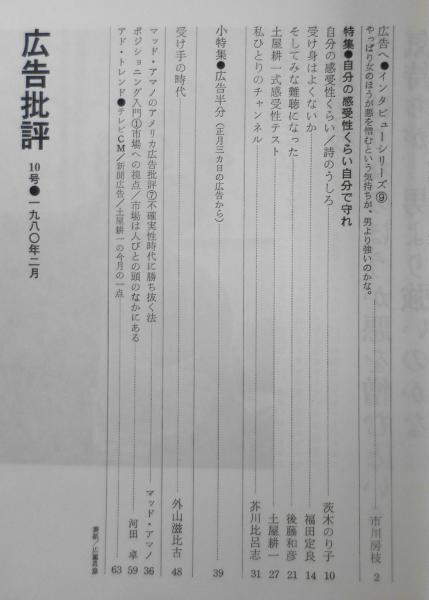 広告へ●インタビューシリーズ⑨
やっぱり女のほうが悪を憎むという気持ちが、男より強いのかな。 市川房枝 2
特集●自分の感受性くらい自分で守れ
自分の感受性くらい/詩のうしろ 茨木のり子 10
受け身はよくないか 福田定良 14
そしてみな難聴になった 後藤和彦 21
土屋耕一式感受性テスト 土屋耕一 27
私ひとりのチャンネル 芥川比呂志 31
小特集●広告半分(正月三カ日の広告から) 39
受け手の時代 外山滋比古 48
マッド・アマノのアメリカ広告批評⑦不確実性時代に勝ち抜く法 マッド・アマノ 36
ポジショニング入門①市場への視点/市場は人びとの頭のなかにある 河田 卓 59
アド・トレンド●テレビCM/新聞広告/土屋耕一の今月の一点 63
表紙/広瀬
広告批評
10号●一九八〇年二月